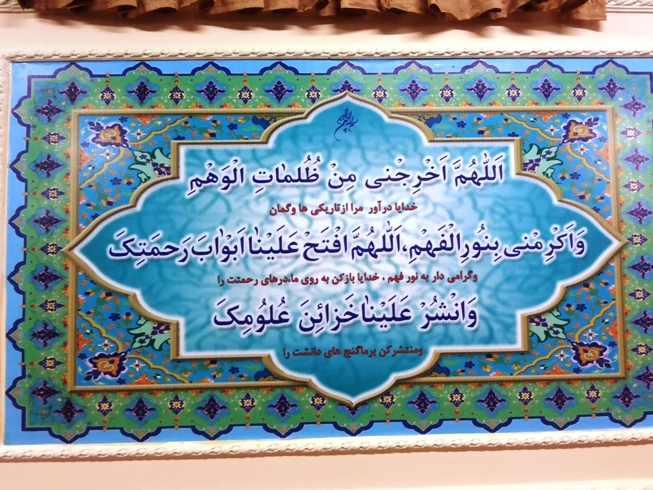 اَللّٰهُمَّ اَخْرِجْنی مِنْ ظُلُماتِ الْوَهْمِ
خدایا درآور مرا ازتاریکی ها وگمان
وَاَکْرِمْنی بِنُورِالْفَهْمِ، اَللّٰهُمَّ افْتَحْ عَلَیْنا اَبْوابَ رَحْمَتِکَ
وگرامی دار به نور فهم ، خدایا بازکن به روی ما،درهای رحمتت را
وَانْشُرْ عَلَیْنا خَزائِنَ عُلُومِکَ
ومنتشرکن برماگنج های دانشت را